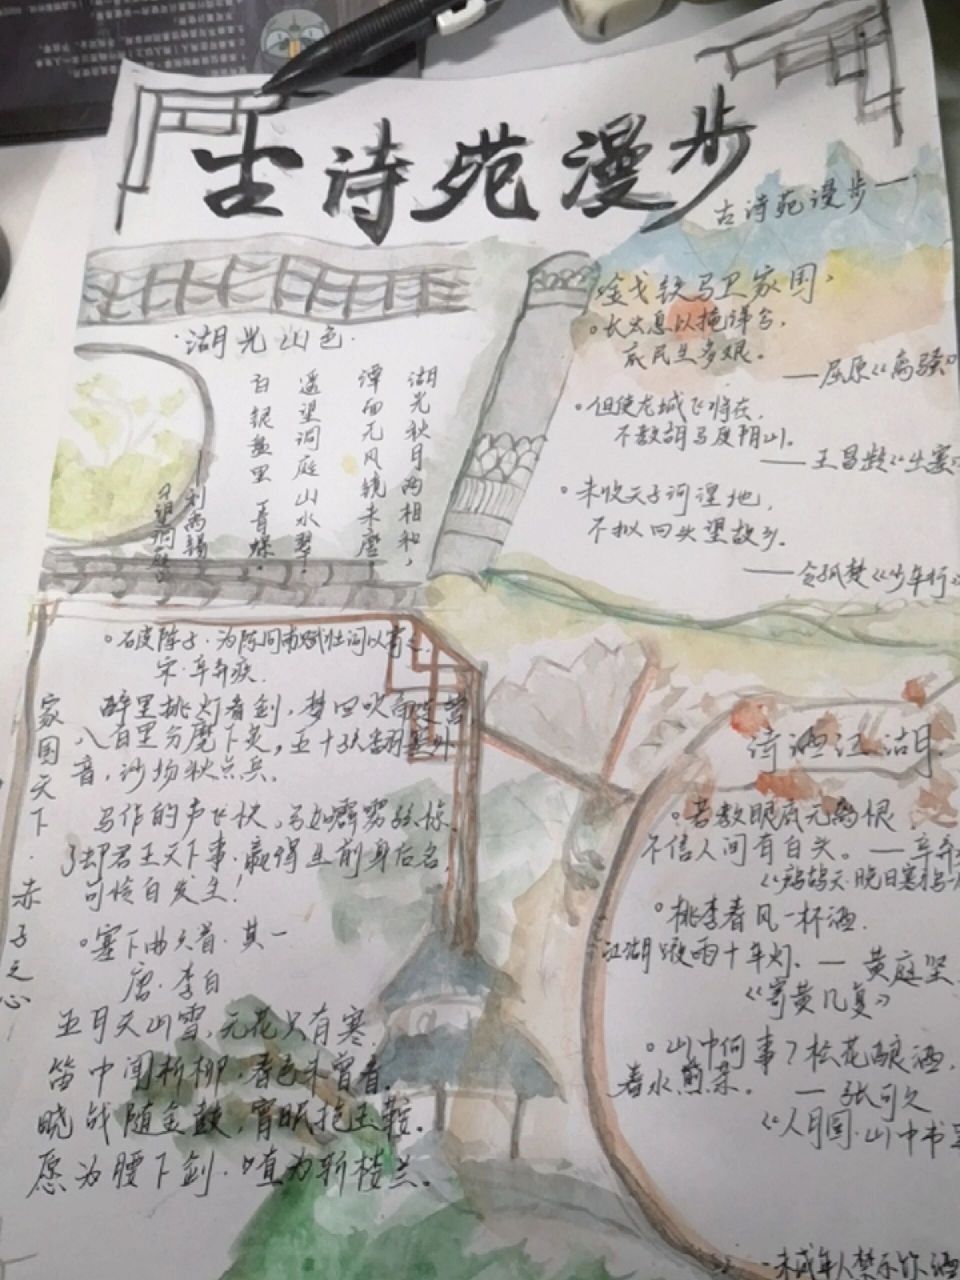 古诗苑漫步
古诗苑漫步
湖光山色
湖光秋月两相和,
潭面无风镜未磨。
遥望洞庭山水翠,
白银盘里一青螺。
——刘禹锡
《望洞庭》
金戈铁马卫家国
长太息以掩涕兮,
哀民生多艰。
——屈原《离骚》
但使龙城飞将在,
不教胡马度阴山。
——王昌龄《出塞》
未收天子河湟地,
不拟回头望故乡。
——令狐楚《少年行》
家国天下·赤子之心
破阵子·为陈同甫赋壮词以寄之
宋·辛弃疾
醉里挑灯看剑,梦回吹角连营,
八百里分麾下炙,五十弦翻塞外
音,沙场秋点兵。
马作的卢飞快,弓如霹雳弦惊。
了却君王天下事,赢得生前身后名,
可怜白发生!
塞下曲六首·其一
唐·李白
五月天山雪,无花只有寒
笛中闻折柳,春色未曾看。
晓战随金鼓,宵眠抱玉鞍。
愿为腰下剑,直为斩楼兰。
诗酒江湖
若教眼底无离恨
不信人间有白头。—辛弃
《鹧鸪天·晚日寒鸦
桃李春风一杯酒
江湖夜雨十年灯。—黄庭坚
《寄黄几复》
山中何事?松花酿酒,
春水煎茶。
—张可久
《人月圆·山中书
未成年人禁止饮酒